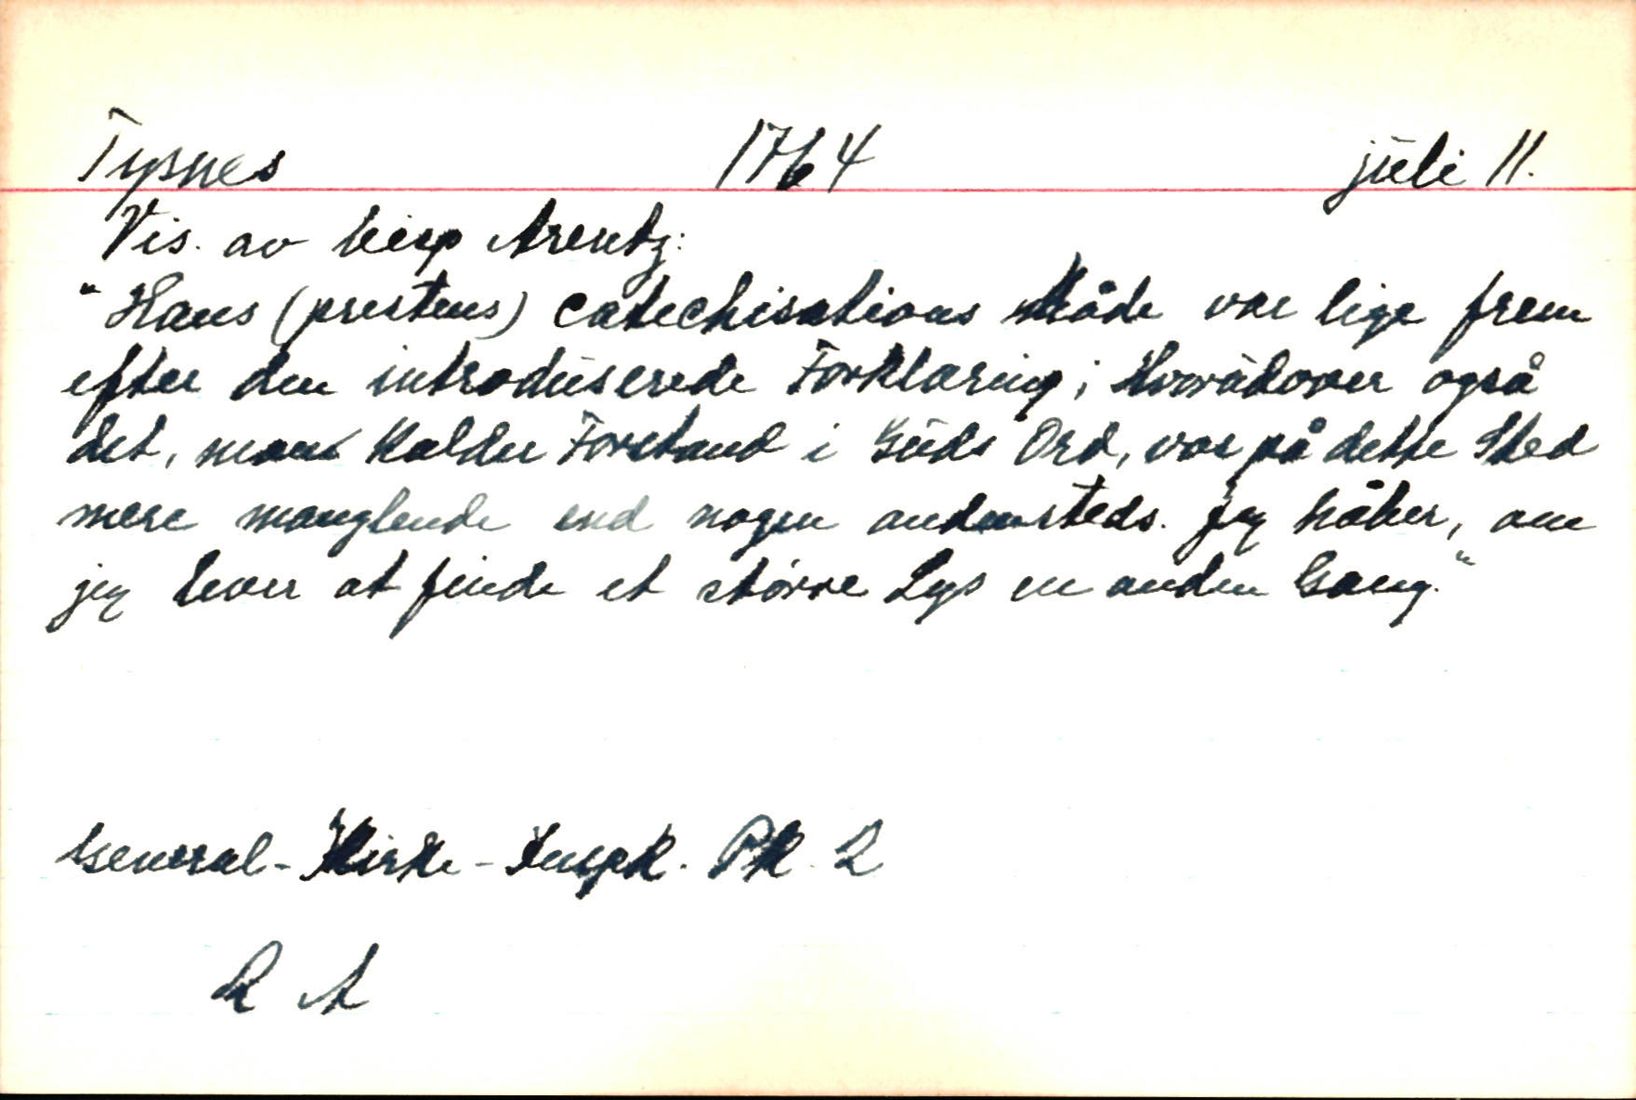 Tysnes 1764 juli 11.
Vis. av bisp Arentz:
"Hans (prestens) catechisations Måde var lige frem
efter den introduserede Forklaring; Hvorådover også
det, man kalder Forstand i Guds Ord, var på dette Sted
mere manglende end nogen andensteds. jeg håber, om
jeg lever at finde et större Lys en anden Gang."
General-Kirke-Inspk. Pk. 2
R A